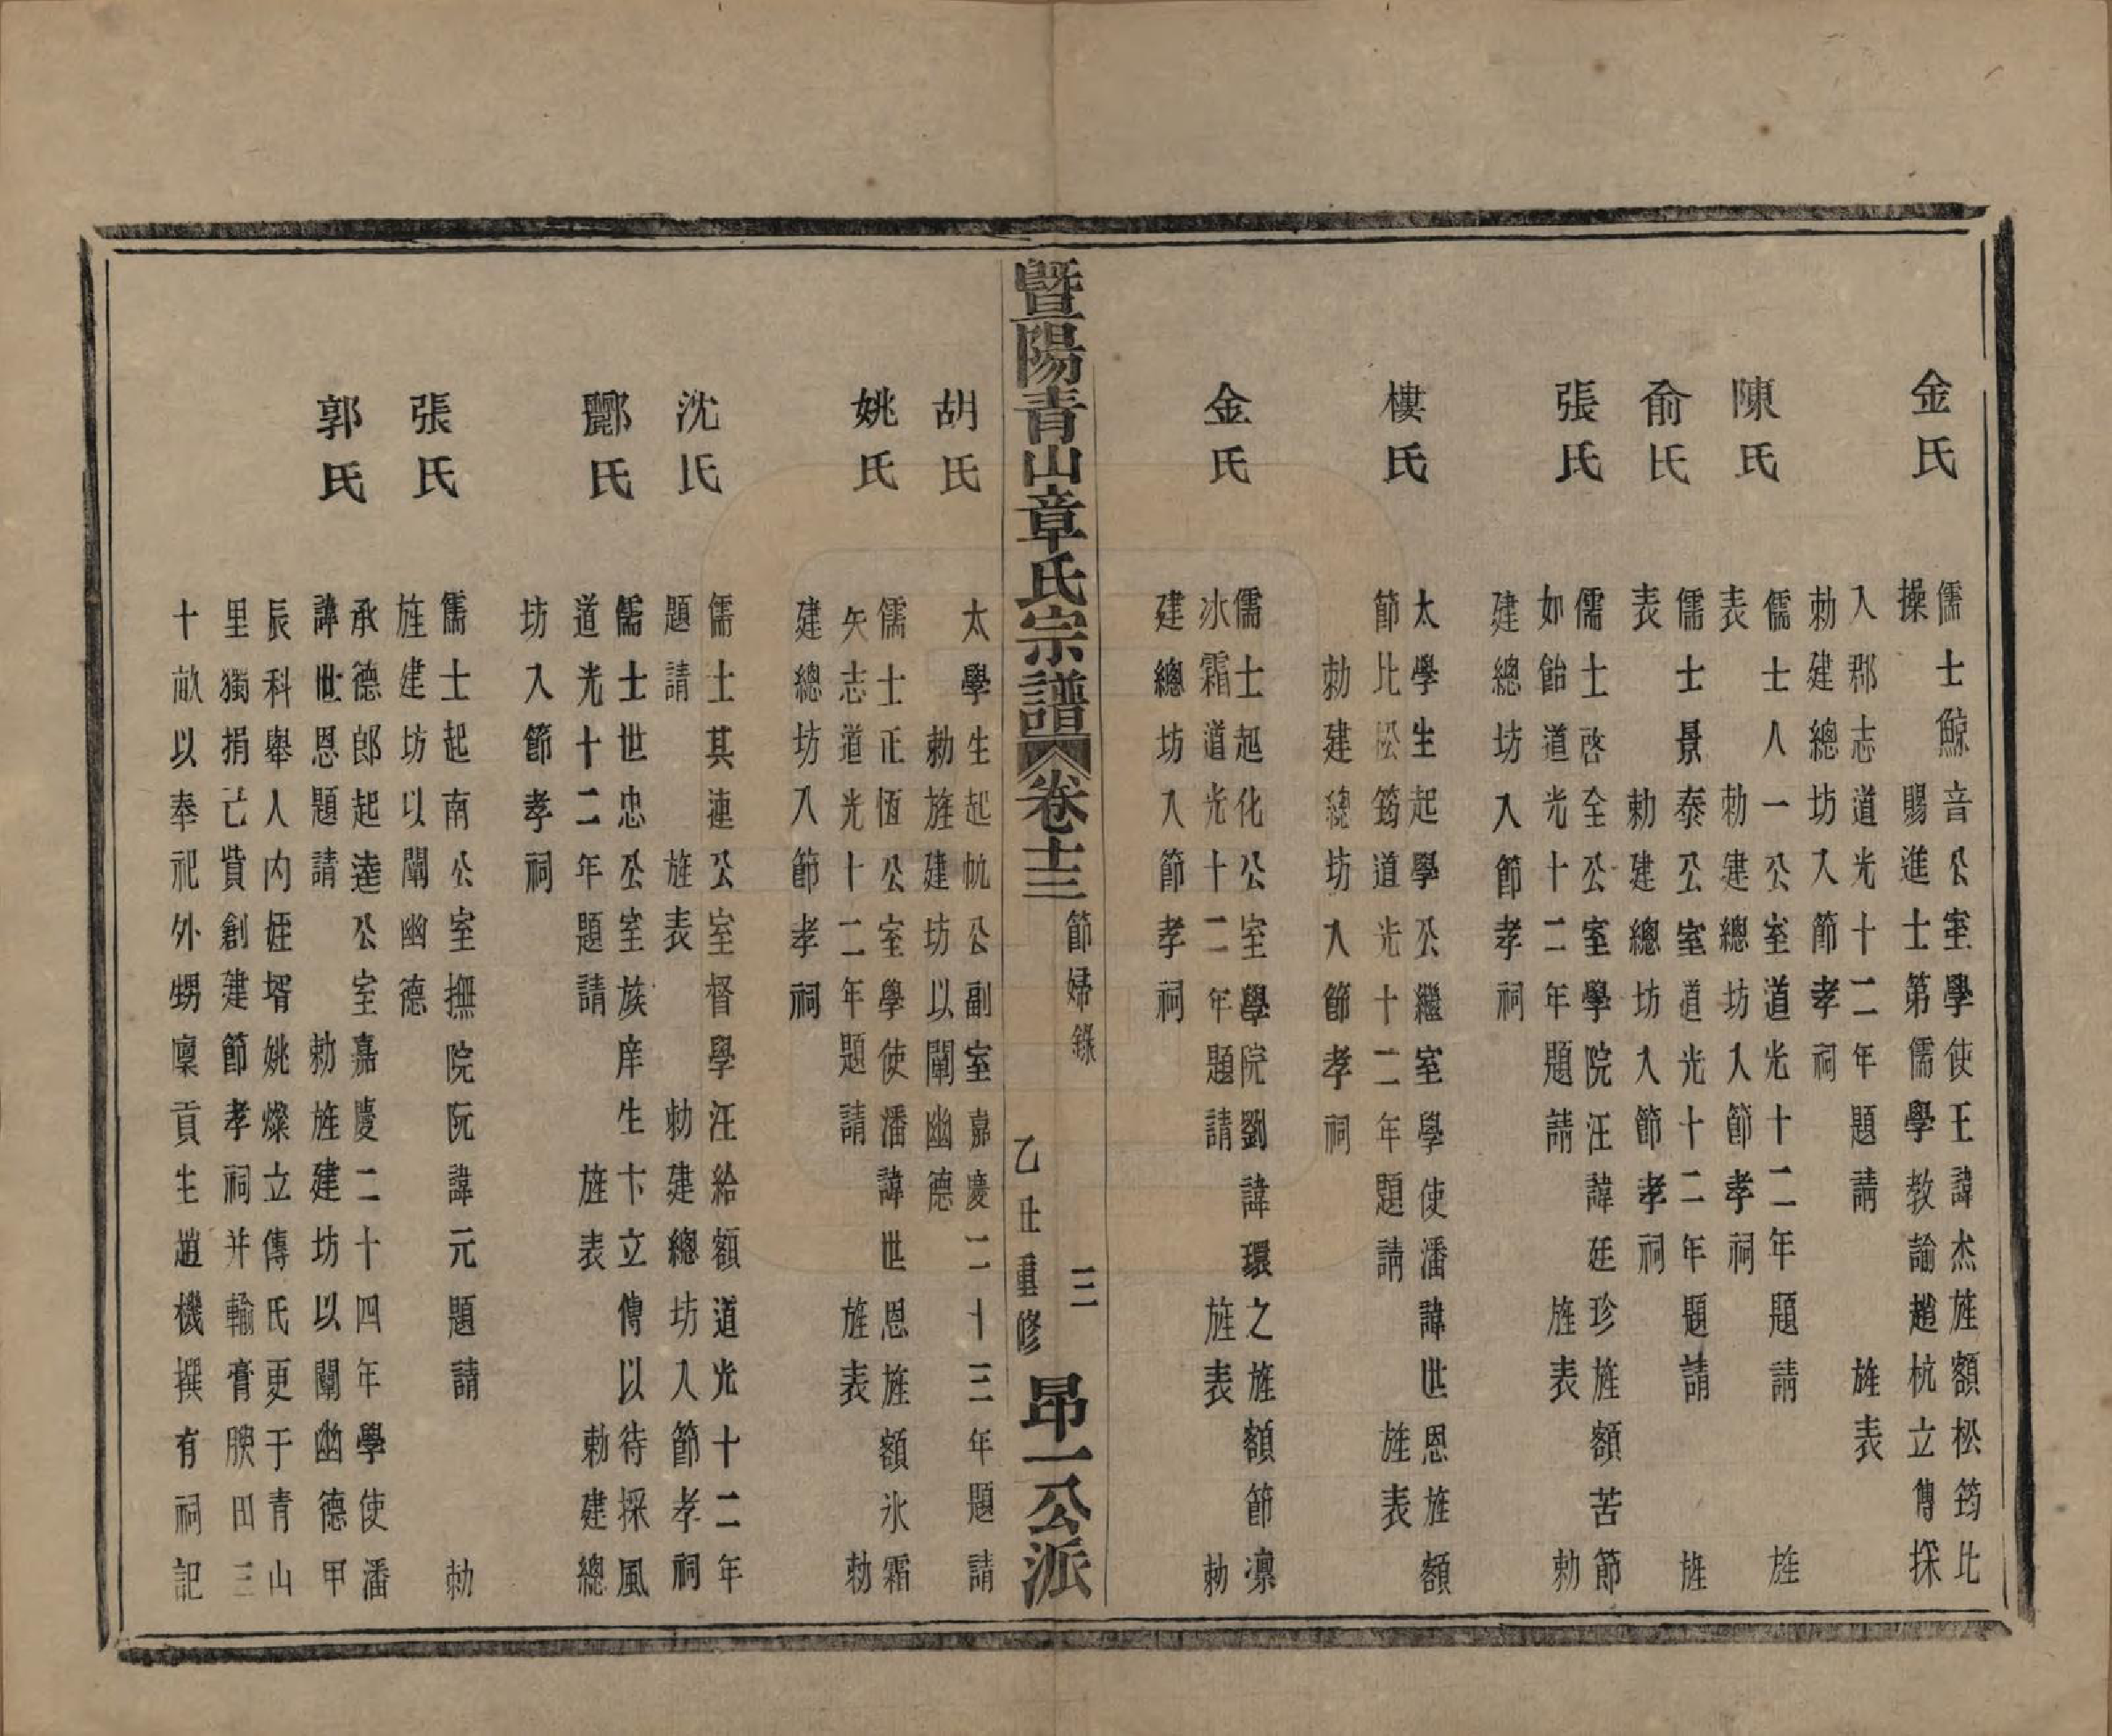 金氏
儒士鯨音公室學使王諱杰旌額松筠比
操 賜進士第儒學教諭趙杭立傳採
入郡志道光十二年題請 旌表
勅建總坊入節孝祠
陳氏
儒士人一公室道光十二年題請 旌
表 勅建總坊入節孝祠
俞氏
儒士景泰公室道光十二年題請 旌
表 勅建總坊入節孝祠
張氏
儒士啓全公室學院汪諱廷珍旌額苦節
如飴道光十二年題請 旌表 勅
建總坊入節孝祠
樓氏
太學生起學公繼室學使潘諱世恩旌額
節比松筠道光十二年題請 旌表
勅建總坊入節孝祠
金氏
儒士起化公室學院劉諱環之旌額節凛
冰霜道光十二年題請 旌表 勅
建總坊入節孝祠
暨陽青山章氏宗譜 卷十三 節婦錄 三 乙丑重修 昂一公派
胡氏
太學生起帆公副室嘉慶二十三年題請
勅旌建坊以闡幽德
姚氏
儒士正恆公室學使潘諱世恩旌額氷霜
矢志道光十二年題請 旌表 勅
建總坊入節孝祠
沈氏
儒士其連公室督學汪給額道光十二年
題請 旌表 勅建總坊入節孝祠
酈氏
儒士世忠公室族庠生卞立傳以待採風
道光十二年題請 旌表 勅建總
坊入節孝祠
張氏
儒士起南公室撫院阮諱元題請 勅
旌建坊以闡幽德
郭氏
承德郎起逵公室嘉慶二十四年學使潘
諱世恩題請 勅旌建坊以闡幽德甲
辰科舉人內姪壻姚燦立傳氏更于青山
里獨捐己貲創建節孝祠并輸膏腴田三
十畝以奉祀外甥廩貢生趙機撰有祠記